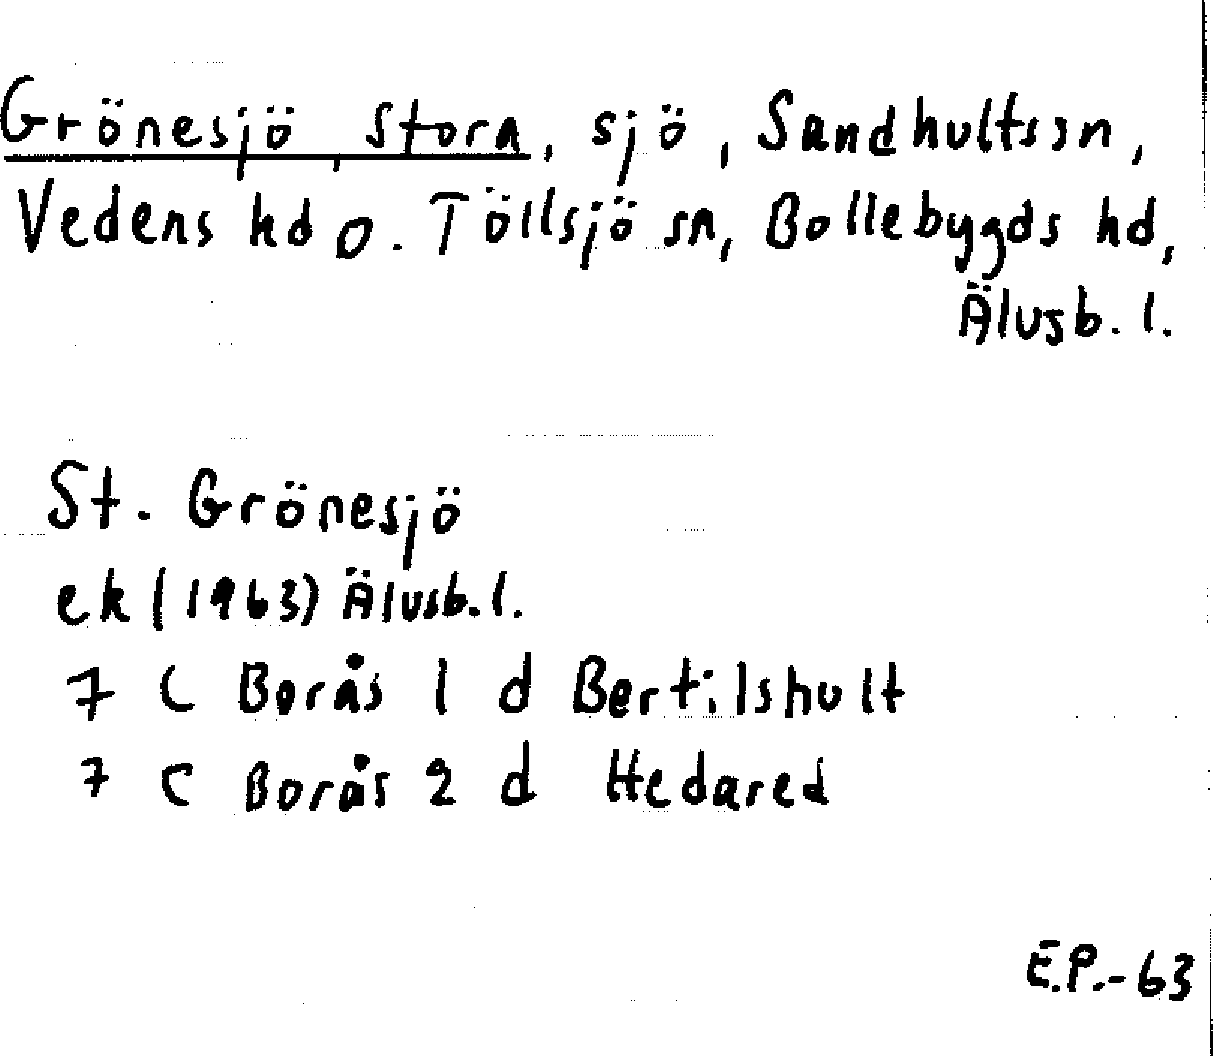 Grönesjö, Stora, sjö, Sandhults sn,
Vedens hd o. Töllsjö sn, Bollebygds hd,
Älvsb. l.
St. Grönesjö
ek (1963) Älvsb. l.
7 C Borås 1 d Bertilshult
7 C Borås 2 d Hedared
E.P.-63